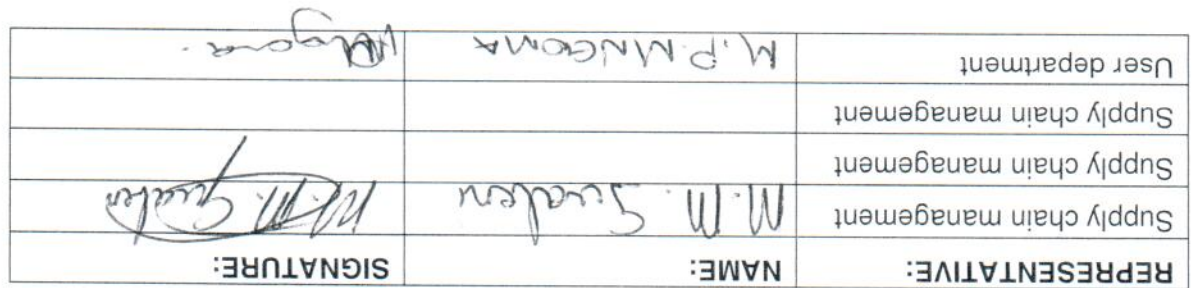 REPRESENTATIVE: NAME: SIGNATURE:
Supply chain management M.M.
Supply chain management
Supply chain management
User department M.P. MNGOMA